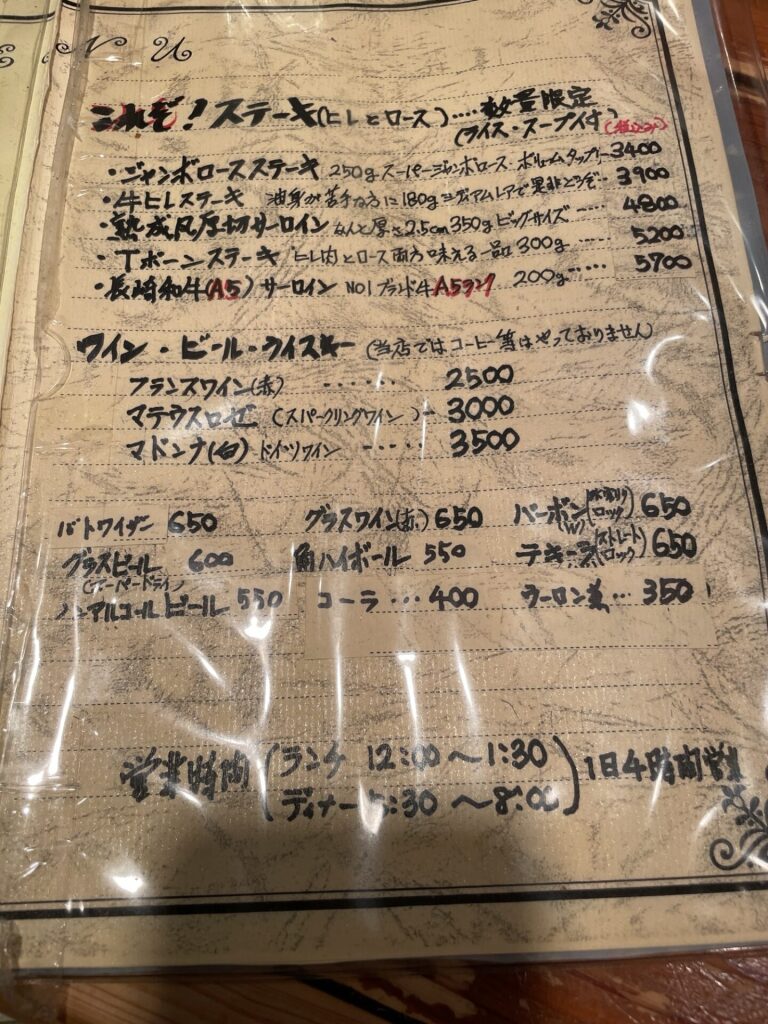 E N U
これぞ!ステーキ(ヒレとロース)····数量限定
(ライス・スープ付)(税込み)
・ジャンボロースステーキ 250g スーパージャンボロース ボリュームタップリ 3400
・牛ヒレステーキ 油身が苦手な方に180gミディアムレアで是非どうぞ… 3900
・熟成凡厚切サーロイン なんと厚さ2.5cm 350g ビッグサイズ ···· 4800
・Tボーンステーキ ヒレ肉とロース両方味える一品 300g ····· 5200
・長崎和牛(A5)サーロイン NO1ブランド牛A5ランク 200g ····· 5700
ワイン・ビール・ウイスキー(当店ではコーヒー等はやっておりません)
フランスワイン(赤) ······ 2500
マテウスロゼ (スパークリングワイン) – 3000
マドンナ(白) ドイツワイン ····· 3500
バドワイザー 650 グラスワイン(赤) 650 バーボン(水割りロック) 650
グラスビール 600 角ハイボール 550 テキーラ(ストレートロック) 650
(スーパードライ)
ノンアルコールビール 550 コーラ ··· 400 ウーロン茶 ··· 350
営業時間 (ランチ 12:00 ~ 1:30
ディナー 5:30 ~ 8:00) 1日4時間営業